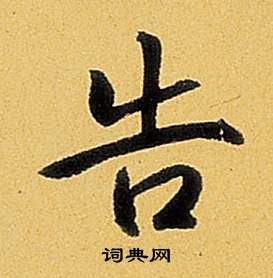 告
词典网